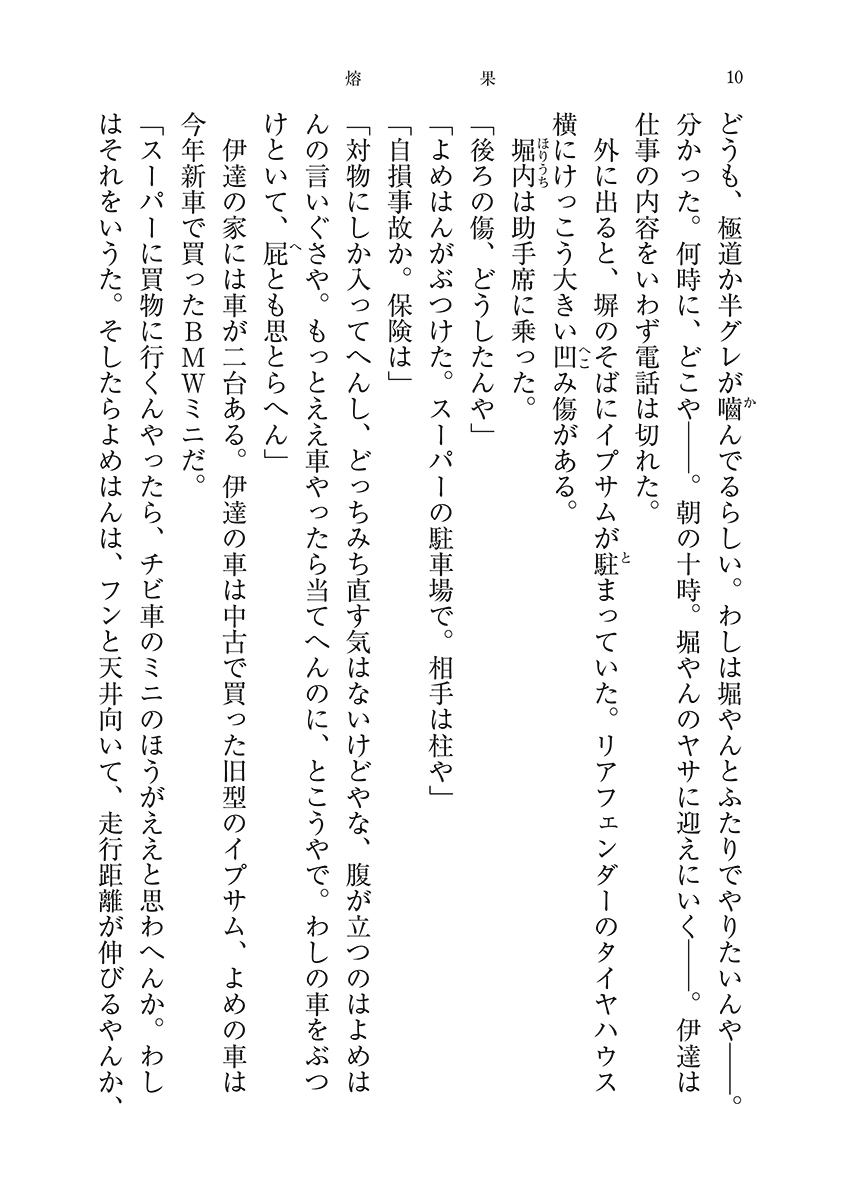 10
果　熔
どうも、極道か半グレが嚙んでるらしい。わしは堀やんとふたりでやりたいんや――。
分かった。何時に、どこや――。朝の十時。堀やんのヤサに迎えにいく――。伊達は
仕事の内容をいわず電話は切れた。
　外に出ると、塀のそばにイプサムが駐まっていた。リアフェンダーのタイヤハウス
横にけっこう大きい凹み傷がある。
　堀内は助手席に乗った。
「後ろの傷、どうしたんや」
「よめはんがぶつけた。スーパーの駐車場で。相手は柱や」
「自損事故か。保険は」
「対物にしか入ってへんし、どっちみち直す気はないけどやな、腹が立つのはよめは
んの言いぐさや。もっとええ車やったら当てへんのに、とこうやで。わしの車をぶつ
けといて、屁とも思とらへん」
　伊達の家には車が二台ある。伊達の車は中古で買った旧型のイプサム、よめの車は
今年新車で買ったＢＭＷミニだ。
「スーパーに買物に行くんやったら、チビ車のミニのほうがええと思わへんか。わし
はそれをいうた。そしたらよめはんは、フンと天井向いて、走行距離が伸びるやんか、